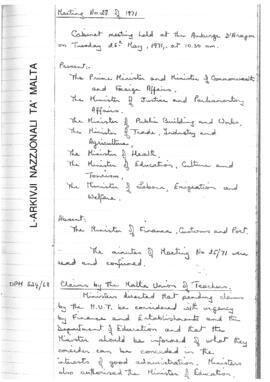 Meeting No 27 of 1971
Cabinet meeting held at the Auberge D'Aragon
on Tuesday 25th May, 1971, at 10.30 am.
Present:-
The Prime Minister and Minister of Commonwealth
and Foreign Affairs.
The Minister of Justice and Parliamentary
Affairs.
The Minister of Public Building and Works.
The Minister of Trade, Industry and
Agriculture.
The Minister of Health.
The Minister of Education, Culture and
Tourism.
The Minister of Labour, Emigration and
Welfare.
Absent:
The Minister of Finance, Customs and Port.
The minutes of Meeting No 26/71 were
read and confirmed.
OPM 624/68
Claims by the Malta Union of Teachers.
Ministers directed that pending claims
by the M.U.T. be considered with urgency
by Finance and Establishments and the
Department of Education and that the
Minister should be informed of what they
consider can be conceded in the
interests of good administration. Ministers
also authorised the Minister of Education,
L-ARKIVJI NAZZJONALI TA' MALTA